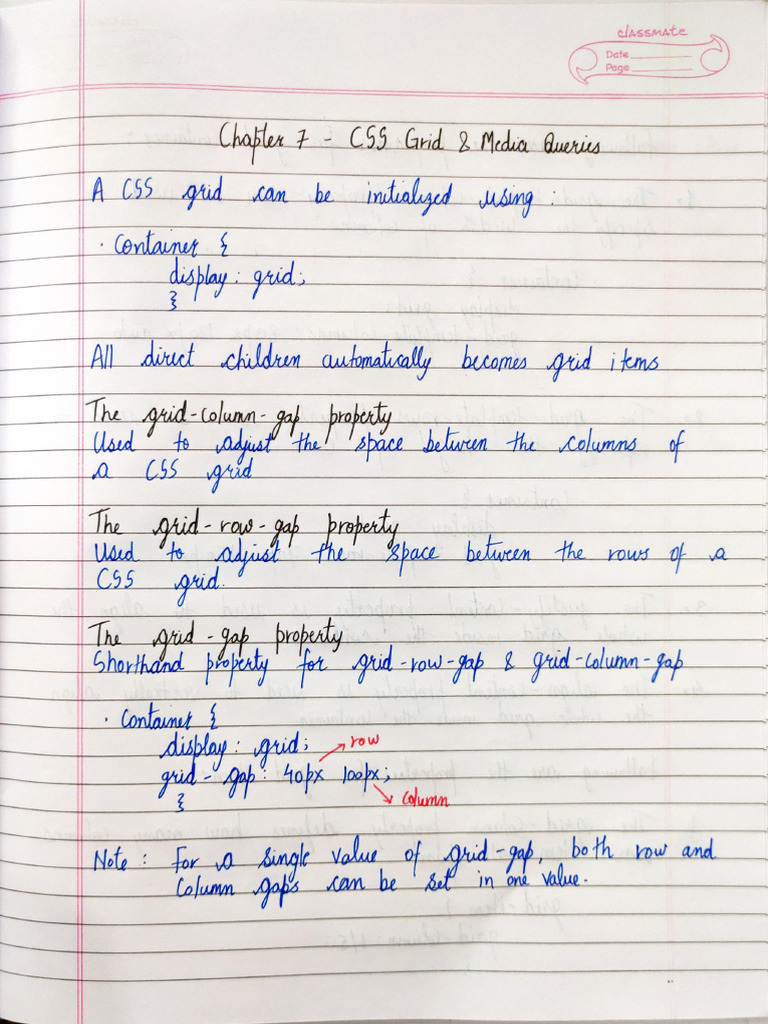 classmate
Date
Page
Chapter 7 - CSS Grid & Media Queries
A CSS grid can be initialized using :
. Container {
display : grid;
}
All direct children automatically becomes grid items
The grid-column-gap property
Used to adjust the space between the columns of
a CSS grid
The grid-row-gap property
Used to adjust the space between the rows of a
CSS grid.
The grid-gap property
Shorthand property for grid-row-gap & grid-column-gap
. Container {
display : grid;
row
grid-gap : 40px 100px;
column
}
Note : For a single value of grid-gap, both row and
column gaps can be set in one value.